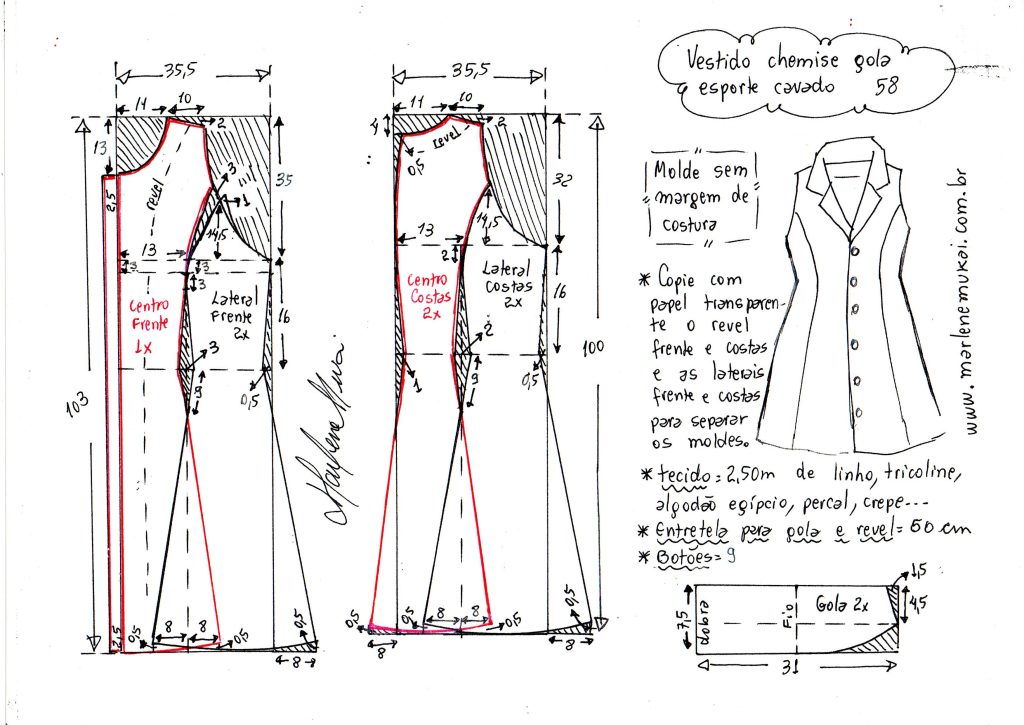 Vestido chemise gola
esporte cavado 58
35,5
11
10
2
13
2,5
revel
3
1
14,5
35
13
3
3
3
Centro
Frente
1x
Lateral
Frente
2x
16
3
9
0,5
103
2,5
0,5
8
8
0,5
0,5
8
35,5
11
10
4
2
0,5
revel
32
14,5
13
2
Centro
Costas
2x
Lateral
Costas
2x
16
2
1
9
0,5
100
0,5
8
8
0,5
0,5
8
8
Molde sem
margem de
costura
* Copie com
papel transparen-
te o revel
frente e costas
e as laterais
frente e costas
para separar
os moldes.
* tecido = 2,50m de linho, tricoline,
algodão egípcio, percal, crepe...
* Entretela para gola e revel = 50 cm
* Botões = 9
www.marlenemukai.com.br
1,5
7,5
dobra
Fio
Gola 2x
4,5
31